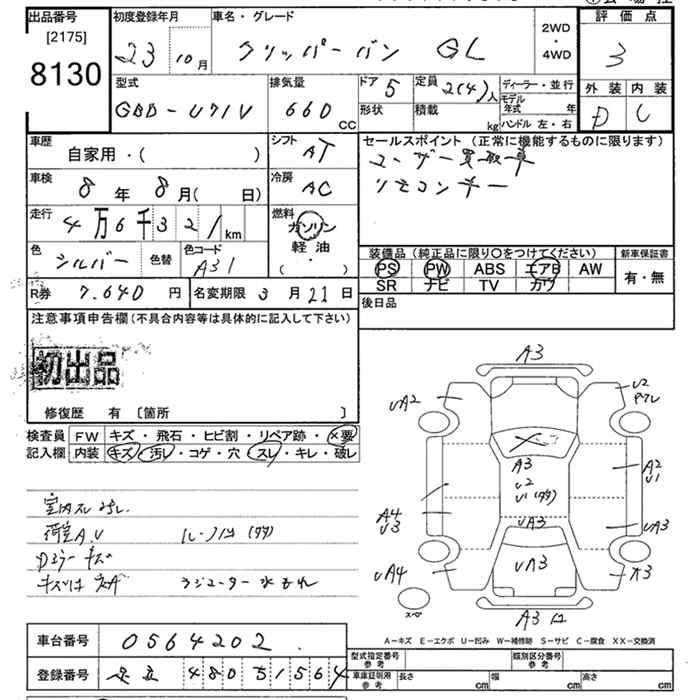 出品番号 初度登録年月 車名・グレード 評価点
[2175] 23 10月 クリッパーバン GL 2WD 4WD 3
8130
型式 排気量 ドア 5 定員 2(4)人 ディーラー・並行 外装 内装
GBD-U71V 660 CC 形状 積載 kg モデル年式 年 D C
ハンドル 左・右
車歴 シフト セールスポイント (正常に機能するものに限ります)
自家用・( ) AT ユーザー買取車
車検 冷房 リモコンキー
8年 8月( 日) AC
走行 燃料
4万6千321km ガソリン
色 色替 色コード 軽油・
シルバー A31 ( )
装備品 (純正品に限り○をつけてください) 新車保証書
PS PW ABS エアB AW 有・無
SR ナビ TV カワ
R券 7.640円 名変期限 3月21日 後日品
注意事項申告欄 (不具合内容等は具体的に記入して下さい)
初出品
修復歴 有 [箇所 ]
検査員 FW キズ・飛石・ヒビ割・リペア跡・×要
記入欄 内装 キズ・汚レ・コゲ・穴・スレ・キレ・破レ
A3
UA2
U2
A3
U2
A2
U1
A4
U3
UA3
UA3
UA4
UA3
A3
A-キズ E-エクボ U-凹み W-補修跡 S-サビ C-腐食 XX-交換済
キズ
ラジエーター水もれ
車台番号 0564202
登録番号 足立 480 51564
型式指定番号 参考 類別区分番号 参考
車庫証明用 参考 長さ cm 幅 cm 高さ cm